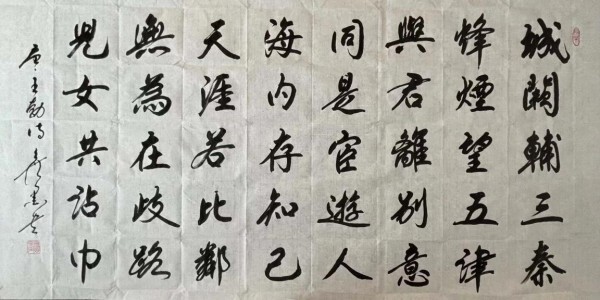 城闕輔三秦
烽煙望五津
與君離别意
同是宦遊人
海内存知己
天涯若比鄰
無為在歧路
兒女共沾巾
唐王勃诗